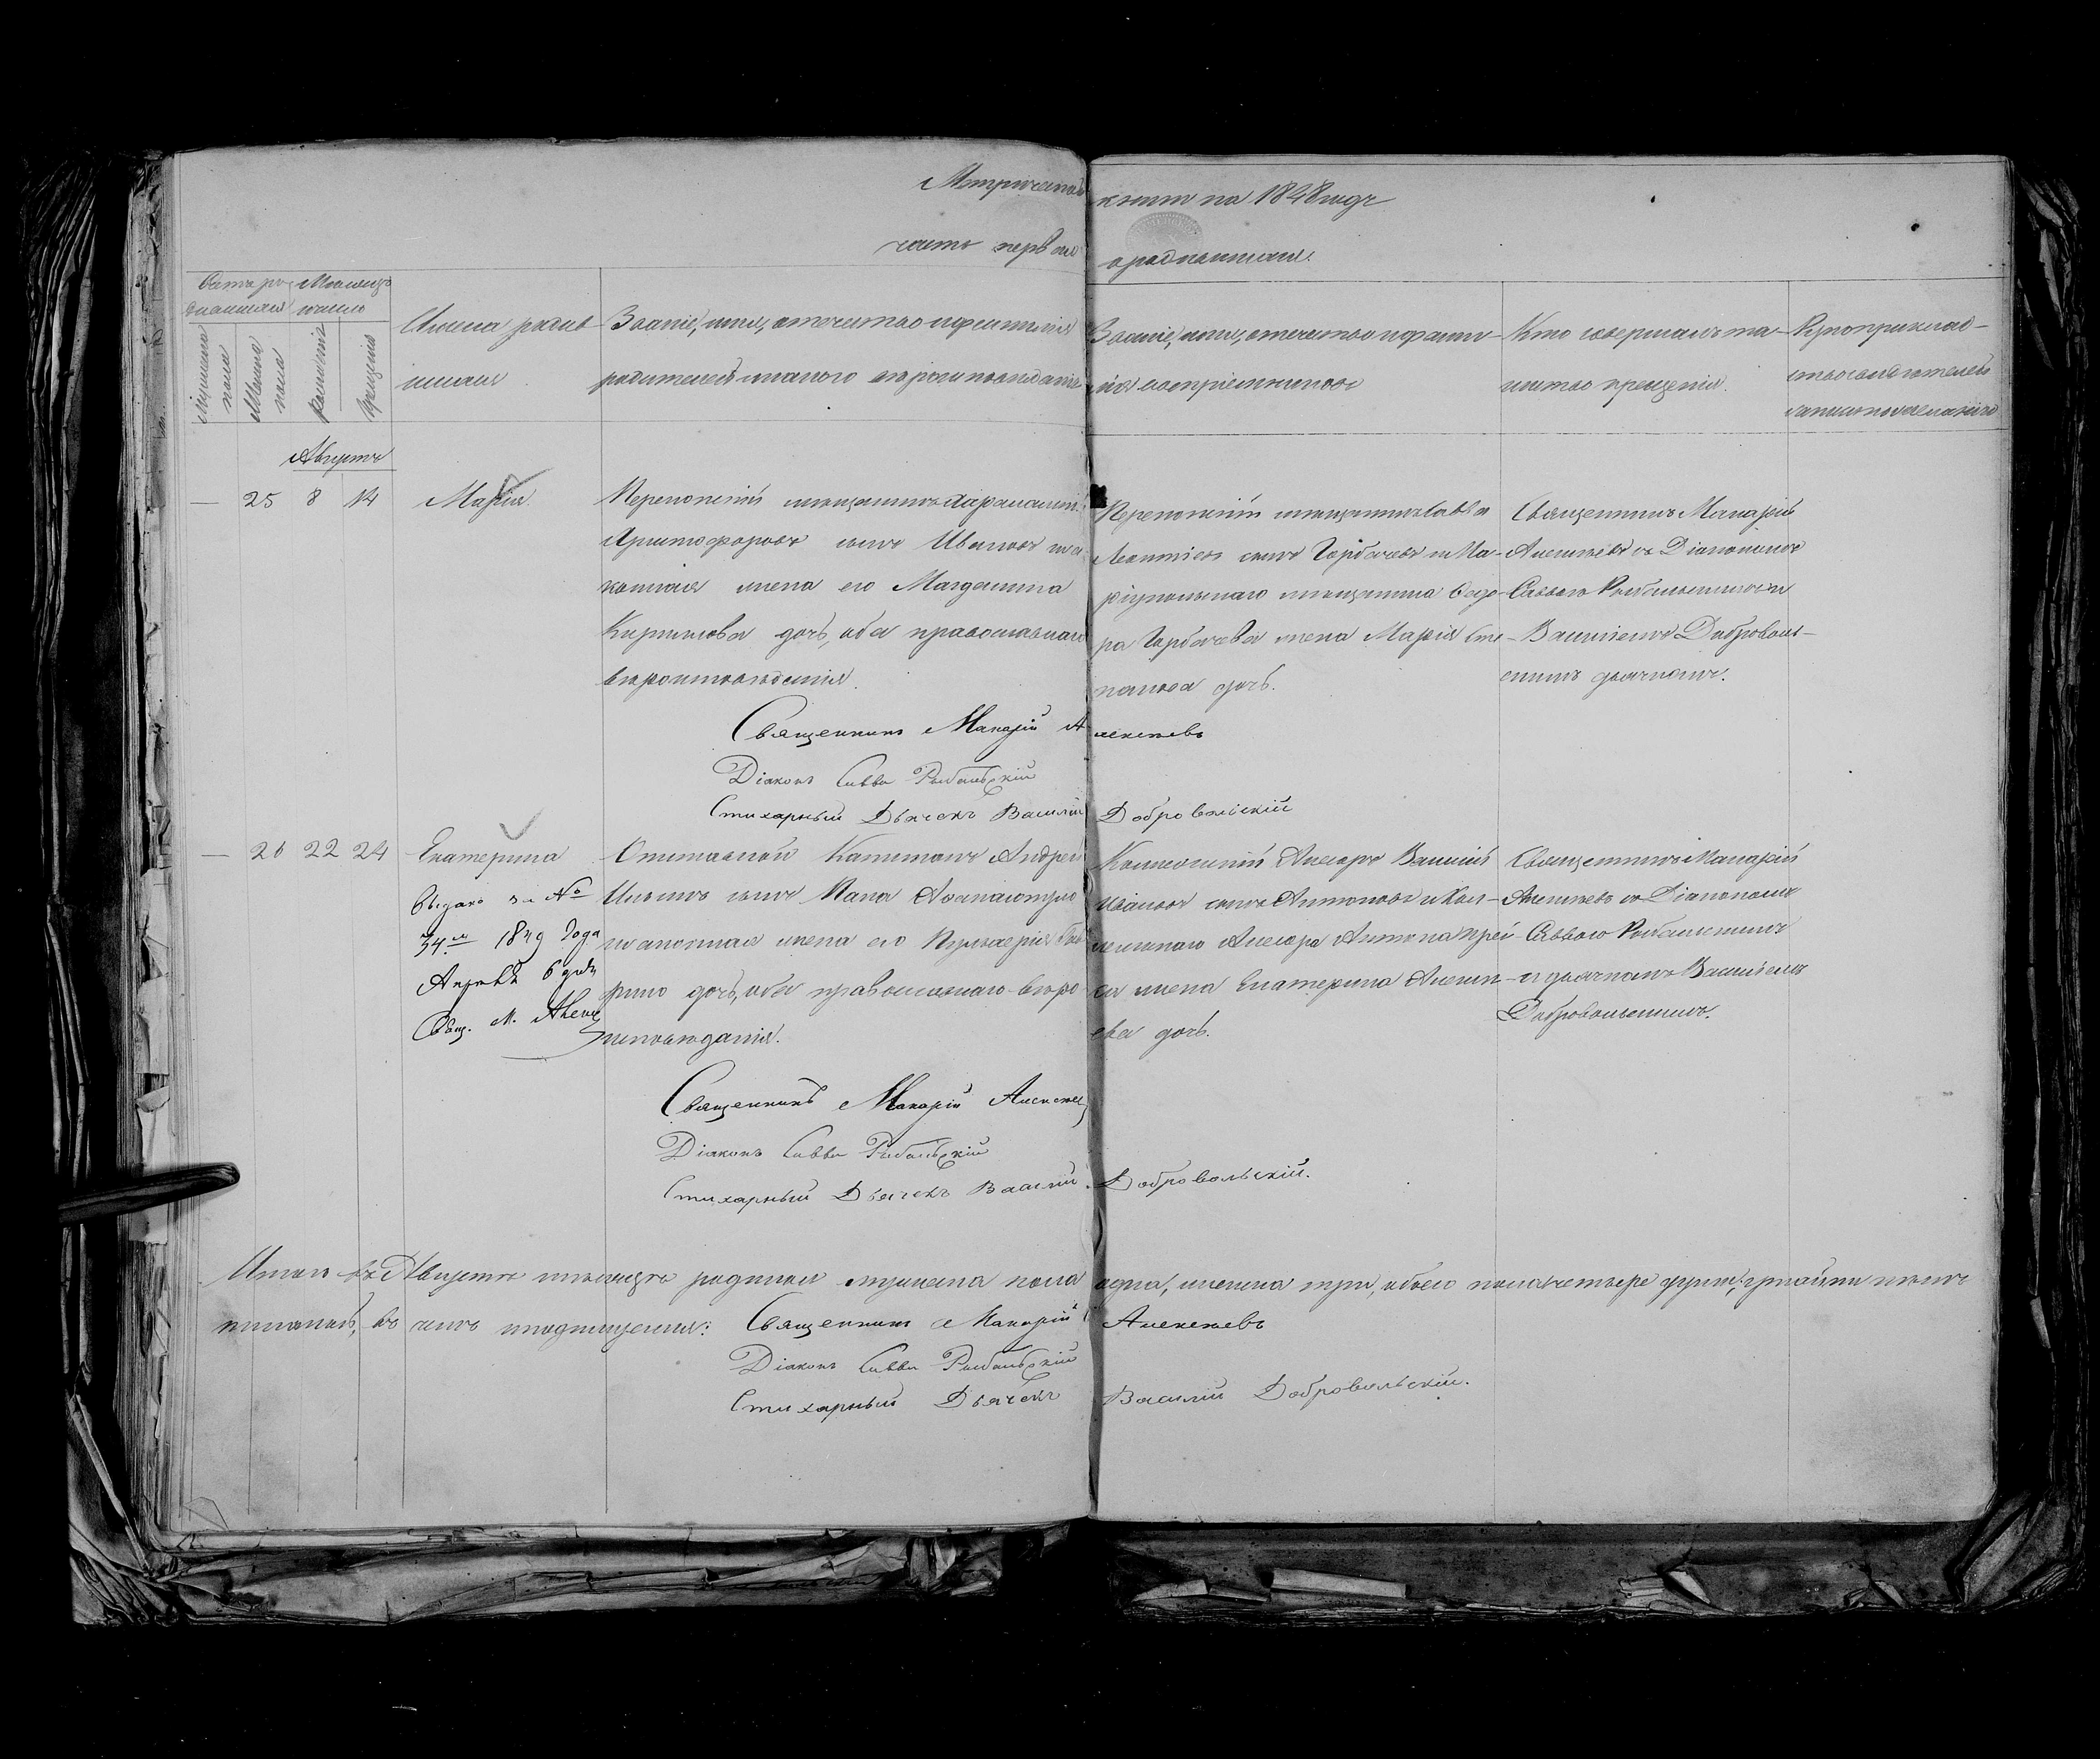 Метрической книги на 1848 годъ
часть первая о родившихся.
Счетъ ро- Мѣсяцъ
дившихся число
Мужеска пола
Женска пола
Рожденія
Крещенія
Имена родив-
шихся
Званіе, имя, отечество и фамилія
родителей и какого вѣроисповѣданія
Званіе, имя, отечество и фами-
лія воспріемниковъ
Кто совершалъ та-
инство крещенія.
Рукоприклад-
ство свидѣтелей
записи по желанію
Августъ
— 25 8 14
Марія
Керченскій мѣщанинъ
Христофоровъ сынъ Ивановъ и за-
конная жена его Магдалина
Кирилова дочь, оба православнаго
вѣроисповѣданія.
Керченскій мѣщанинъ Савва
Леонтіевъ сынъ Горбачевъ и Ма-
ріупольскаго мѣщанина Ѳедо-
ра Горбачева жена Марія Сте-
панова дочь.
Священникъ Макарій
Алексѣевъ съ Діакономъ
Саввою Рыбальскимъ и
Василіемъ Доброволь-
скимъ дьячкомъ.
Священникъ Макарій Алексѣевъ
Діаконъ Савва Рыбальскій
Стихарный Дьячекъ Василій Добровольскій
— 26 22 24
Екатерина
Выдано за №
34.м 1849 Года
Апрѣля 6 дня
Свящ. М. Алекс
Отставной Капитанъ Андрей
Ильинъ сынъ Папа
и законная жена его Пульхерія
дочь, оба православнаго вѣро-
исповѣданія.
Василій
Ивановъ сынъ Антоновъ и Кол-
лежскаго Ассесора Антона
жена Екатерина Алексѣ-
ева дочь.
Священникъ Макарій
Алексѣевъ съ Діакономъ
Саввою Рыбальскимъ
и дьячкомъ Василіемъ
Добровольскимъ.
Священникъ Макарій Алексѣевъ
Діаконъ Савва Рыбальскій
Стихарный Дьячекъ Василій Добровольскій.
Итого въ Августѣ мѣсяцѣ родилось мужеска пола одна, женска три, обоего пола четыре души;
въ чемъ и подпишемся: Священникъ Макарій Алексѣевъ
Діаконъ Савва Рыбальскій
Стихарный Дьячекъ Василій Добровольскій.